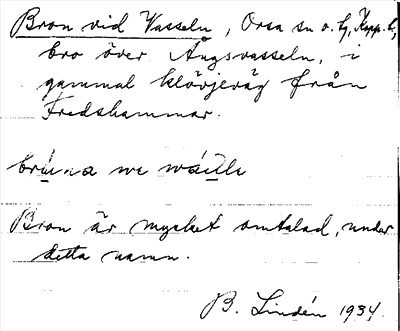 Bron vid Vasseln, Orsa sn o. hg, Kopp. l.,
bro över Ångsvasseln, i
gammal klövjeväg från
Fredshammar.
Bron är mycket omtalad, under
detta namn.
B. Lindén 1934.